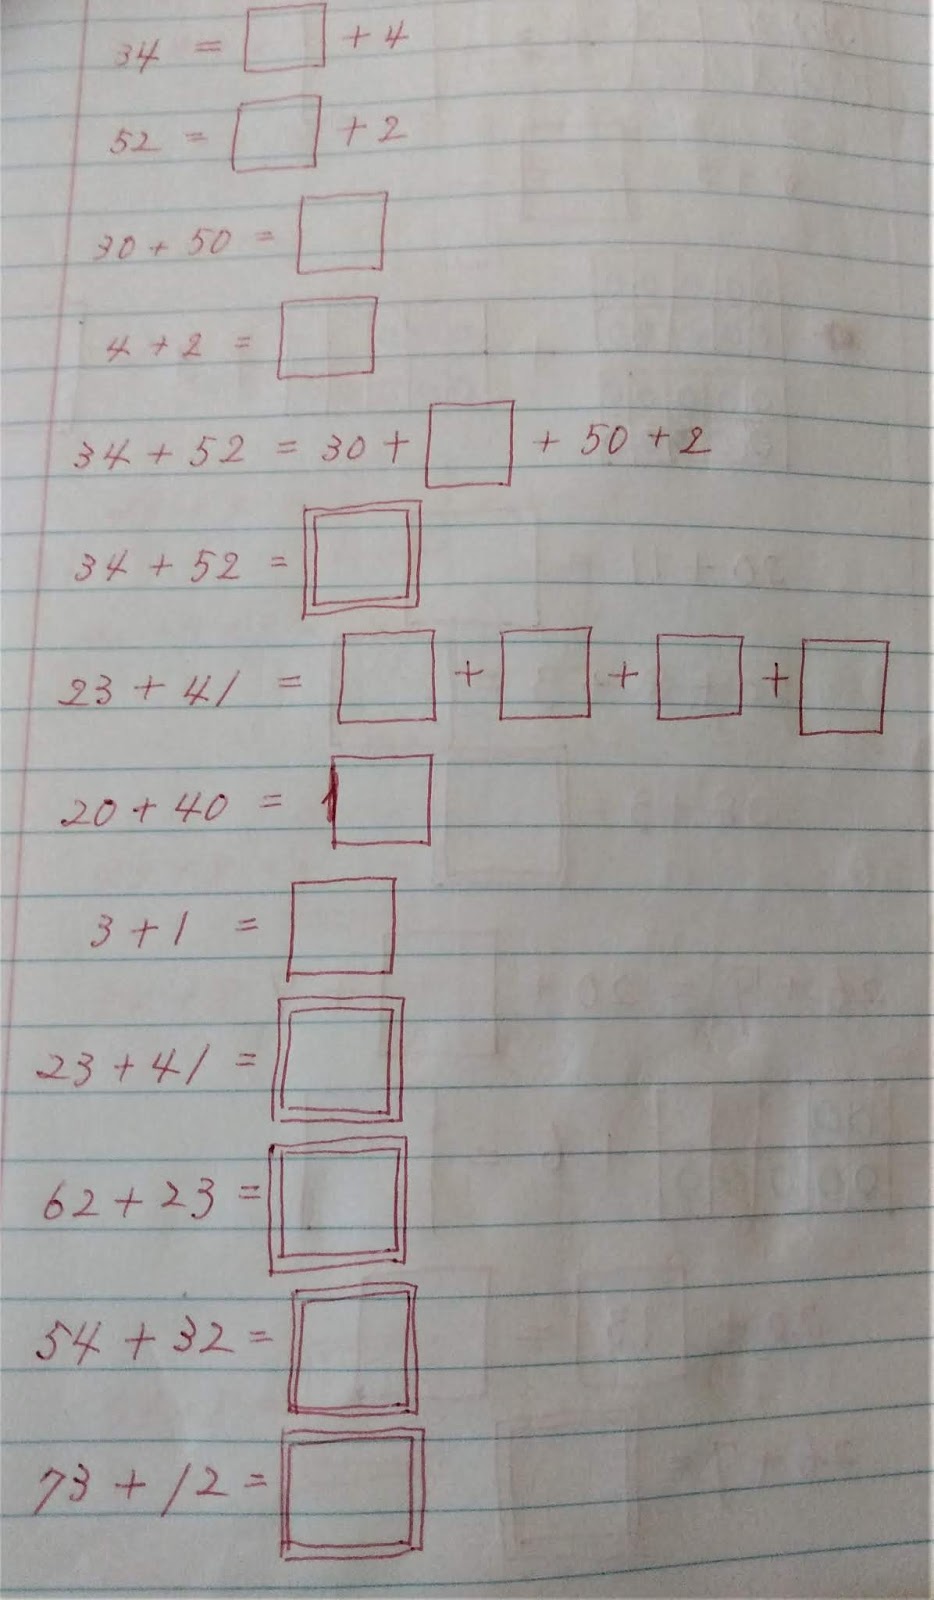 34 = □ + 4
52 = □ + 2
30 + 50 = □
4 + 2 = □
34 + 52 = 30 + □ + 50 + 2
34 + 52 = □
23 + 41 = □ + □ + □ + □
20 + 40 = □
3 + 1 = □
23 + 41 = □
62 + 23 = □
54 + 32 = □
73 + 12 = □